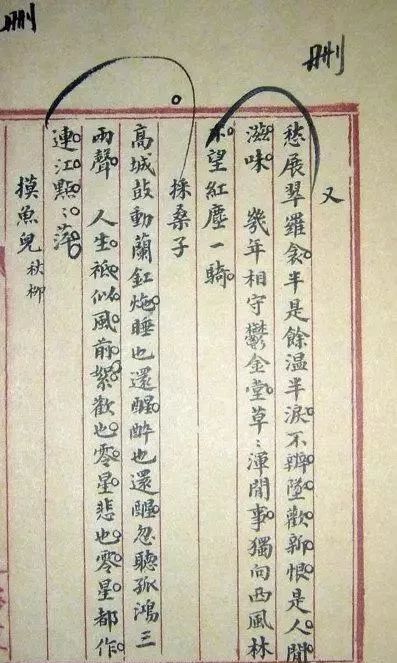 删
删
又
愁展翠羅衾半是餘温半淚不辨墜歡新恨是人間
滋味　幾年相守鬱金堂草〻渾閒事獨向西風林
下望紅塵一騎
採桑子
高城鼓動蘭釭灺睡也還醒醉也還醒忽聽孤鴻三
兩聲　人生祗似風前絮歡也零星悲也零星都作
連江點〻萍
摸魚兒 秋柳